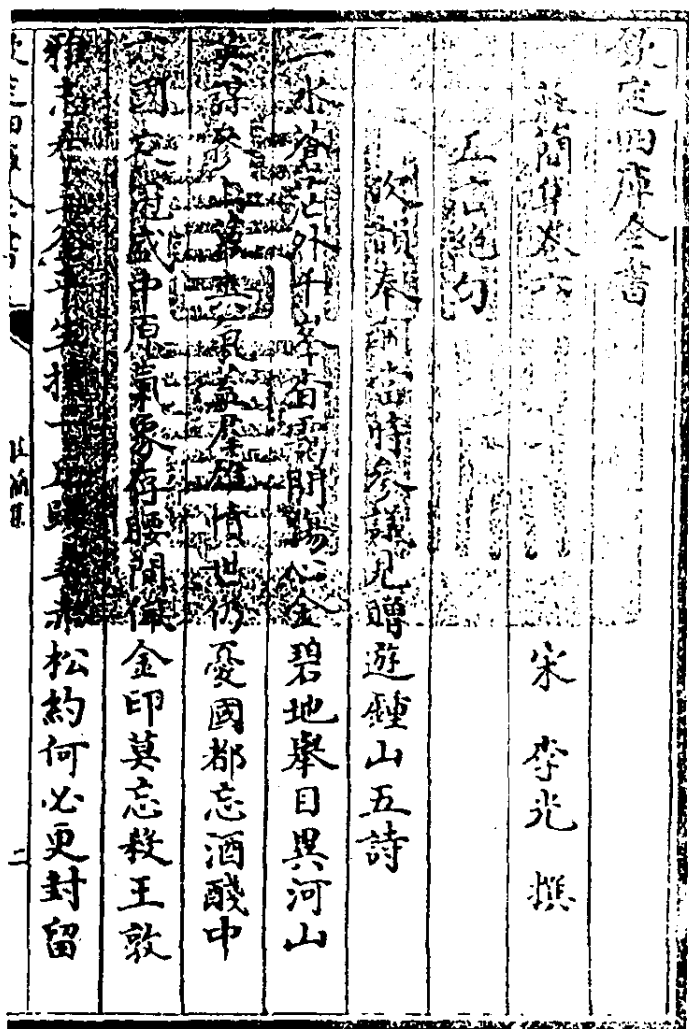 欽定四庫全書
莊簡集卷六
宋 李光 撰
五言絶句
次韻奉酬當時參議見贈遊鍾山五詩
二水滄茫外千峯杳靄間傷心金碧地舉目異河山
英謀參上氣蓋羣雄憤世仍憂國都忘酒醆中
六國衣冠盛中原氣象存腰間佩金印莫忘殺王敦
雅志平生松約何必更封留
欽定四庫全書
莊簡集
二